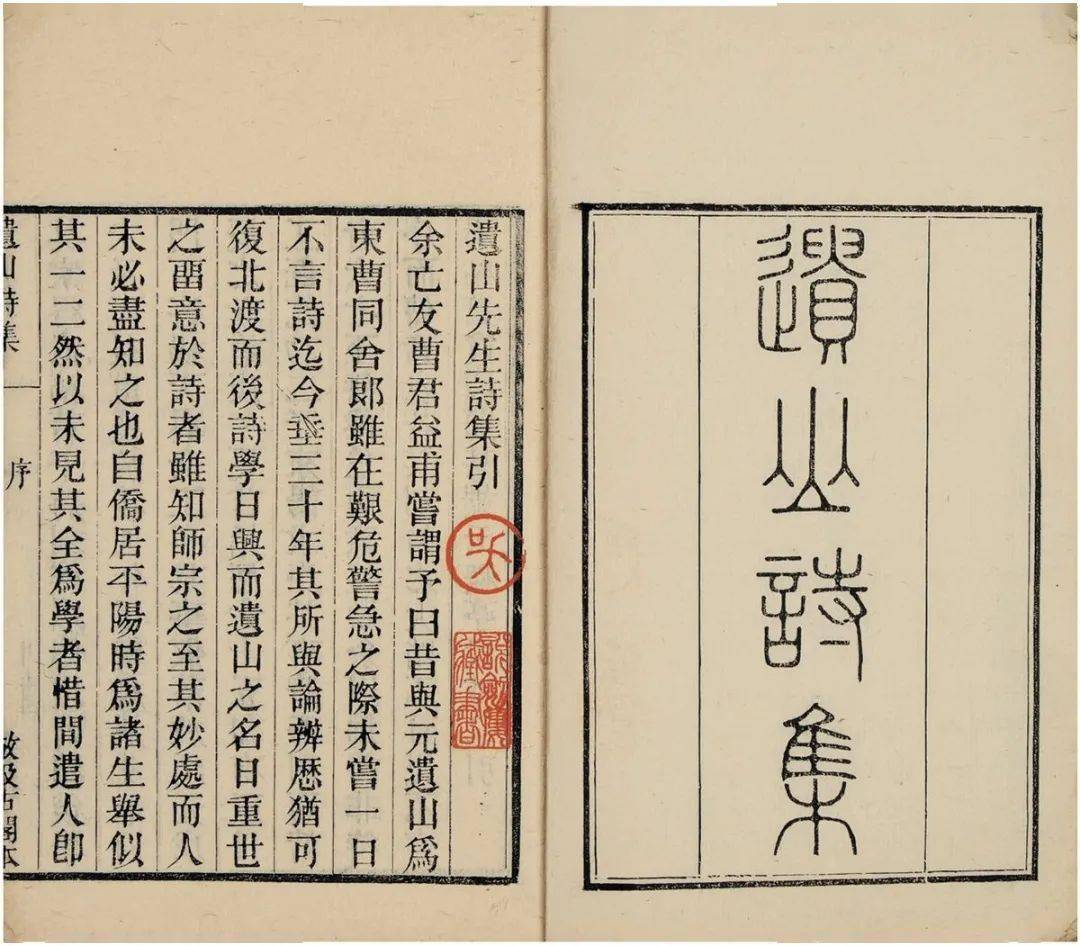 遺山詩集
遺山先生詩集引
余亡友曹君益甫嘗謂予曰昔與元遺山爲
東曹同舍郎雖在艱危警急之際未嘗一日
不言詩迄今垂三十年其所與論辨歷猶可
復北渡而後詩學日興而遺山之名日重世
之畱意於詩者雖知師宗之至其妙處而人
未必盡知之也自僑居平陽時爲諸生舉似
其一二然以未見其全爲學者惜間遣人即
遺山詩集
序
汲古閣本